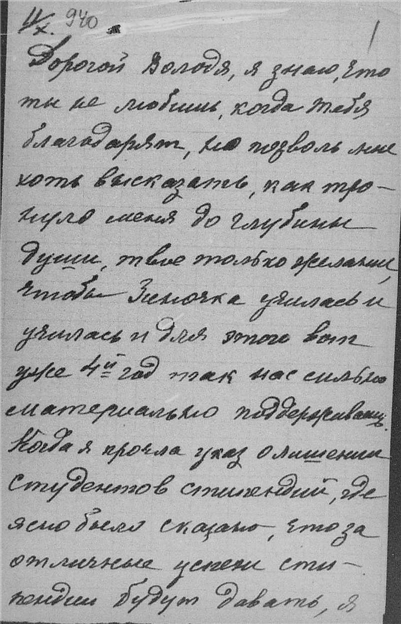 11/X. 940
1
Дорогой Володя, я знаю, что
ты не любишь, когда тебя
благодарят, но позволь мне
хоть высказать, как тро-
нуло меня до глубины
души, твое только желание,
чтобы Зиночка училась и
училась и для этого вот
уже 4й год так нас сильно
материально поддерживаешь.
Когда я прочла указ о лишении
студентов стипендий, где
ясно было сказано, что за
отличные успехи сти-
пендии будут давать, я